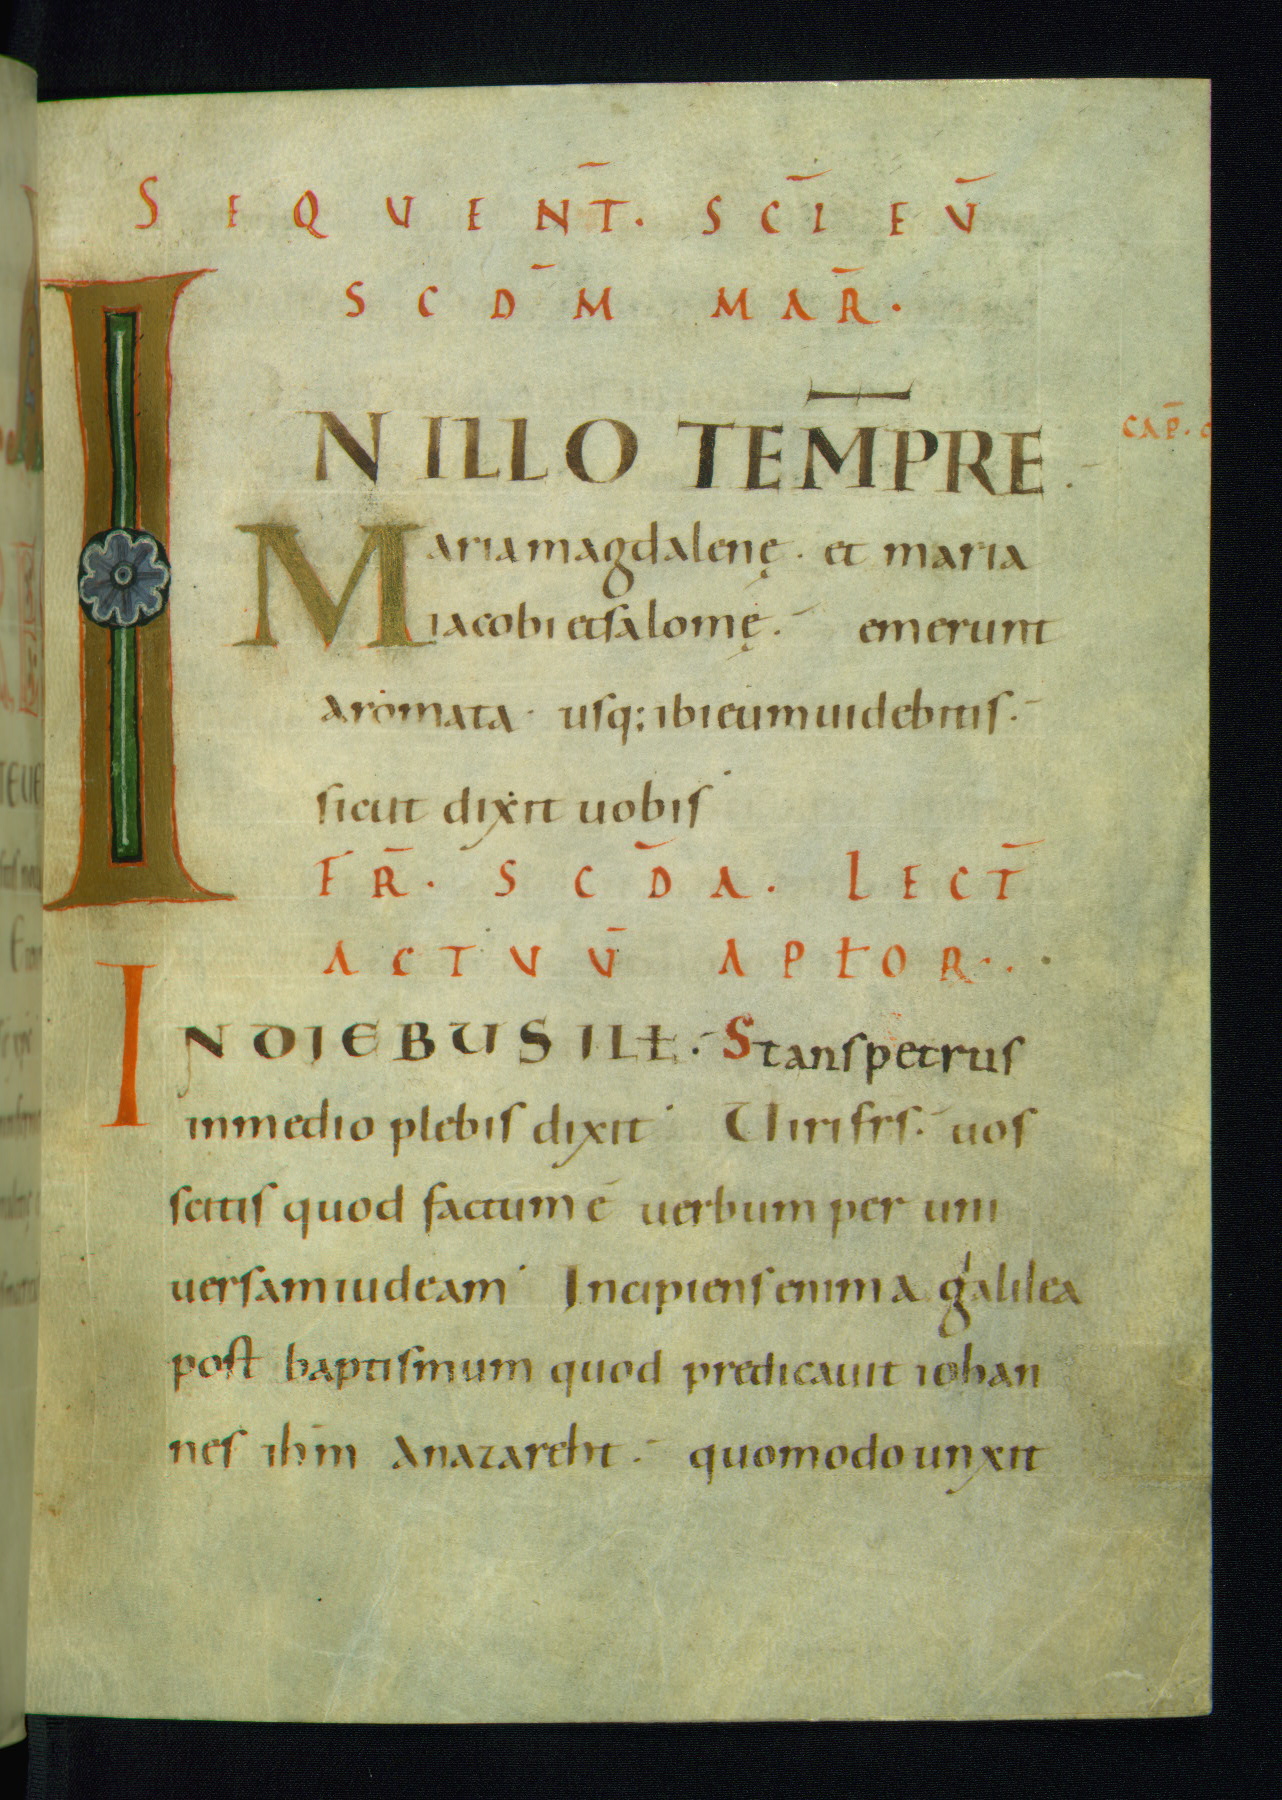 SEQUEN̄T. SC̄I EV̄
SCD̄M MAR̄.
IN ILLO TEM̄PRE.
Maria magdalenę. et maria
iacobi et salomę. emerunt
aromata. usq; ibi eum uidebitis.
sicut dixit uobis
FR̄. SCD̄A. LECT̄
ACTVV̄ APŁOR.
CAP̄.
IN DIEBUS ILŁ. Stans petrus
in medio plebis dixit Uiri frs̄. uos
scitis quod factum ē uerbum per uni
uersam iudeam Incipiens enim a galilea
post baptismum quod predicauit iohan
nes ih̄m A nazareht. quomodo unxit